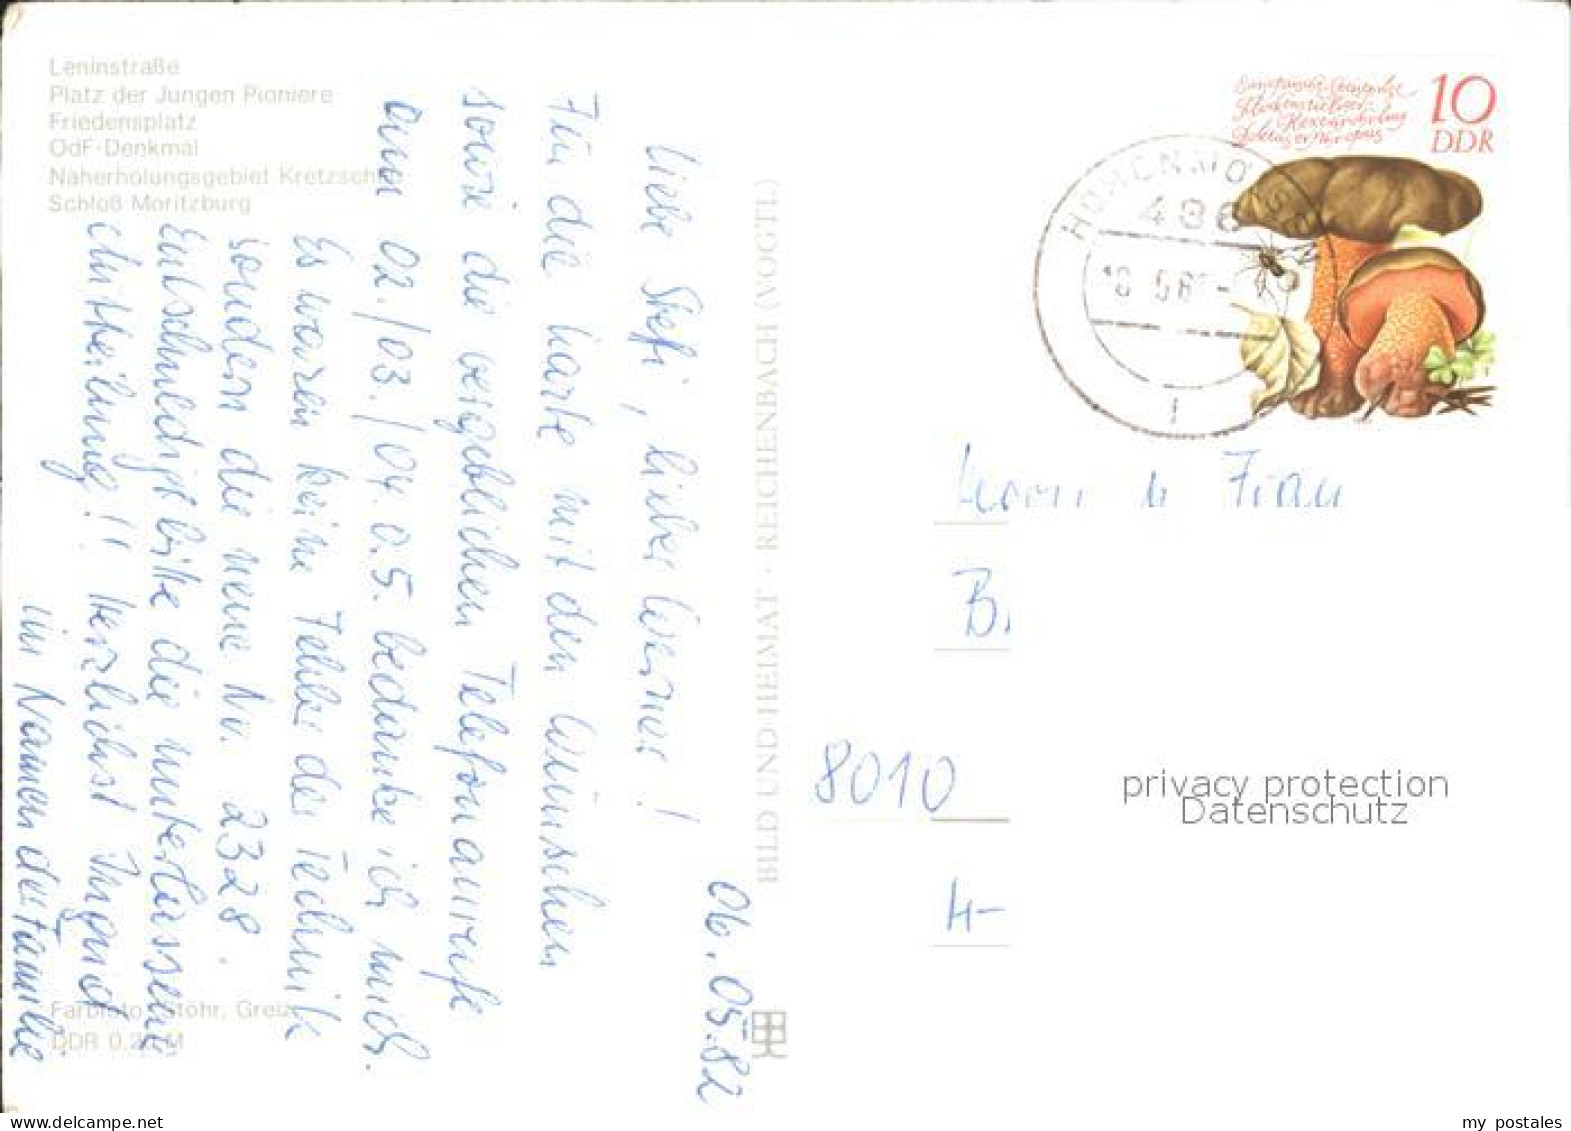 Leninstraße
Platz der Jungen Pioniere
Friedensplatz
OdF-Denkmal
Naherholungsgebiet Kretzsch
Schloß Moritzburg
06.05.82
Liebe Stefi, lieber Werner!
Für die Karte mit den Wünschen
sowie die vergeblichen Telefonanrufe
am 02./03./04.05. bedanke ich mich.
Es waren keine Fehler der Technik
sondern die neue Nr. 2328.
Entschuldigt bitte die unterlassene
Mitteilung!! Herzlichst Ingrid
im Namen der Familie
Farbfoto: Stöhr, Greiz
DDR 0,20 M
BILD UND HEIMAT · REICHENBACH (VOGTL)
10
DDR
HOHENMÖLS
486
Herrn u Frau
B
8010
H-
privacy protection
Datenschutz
my postales